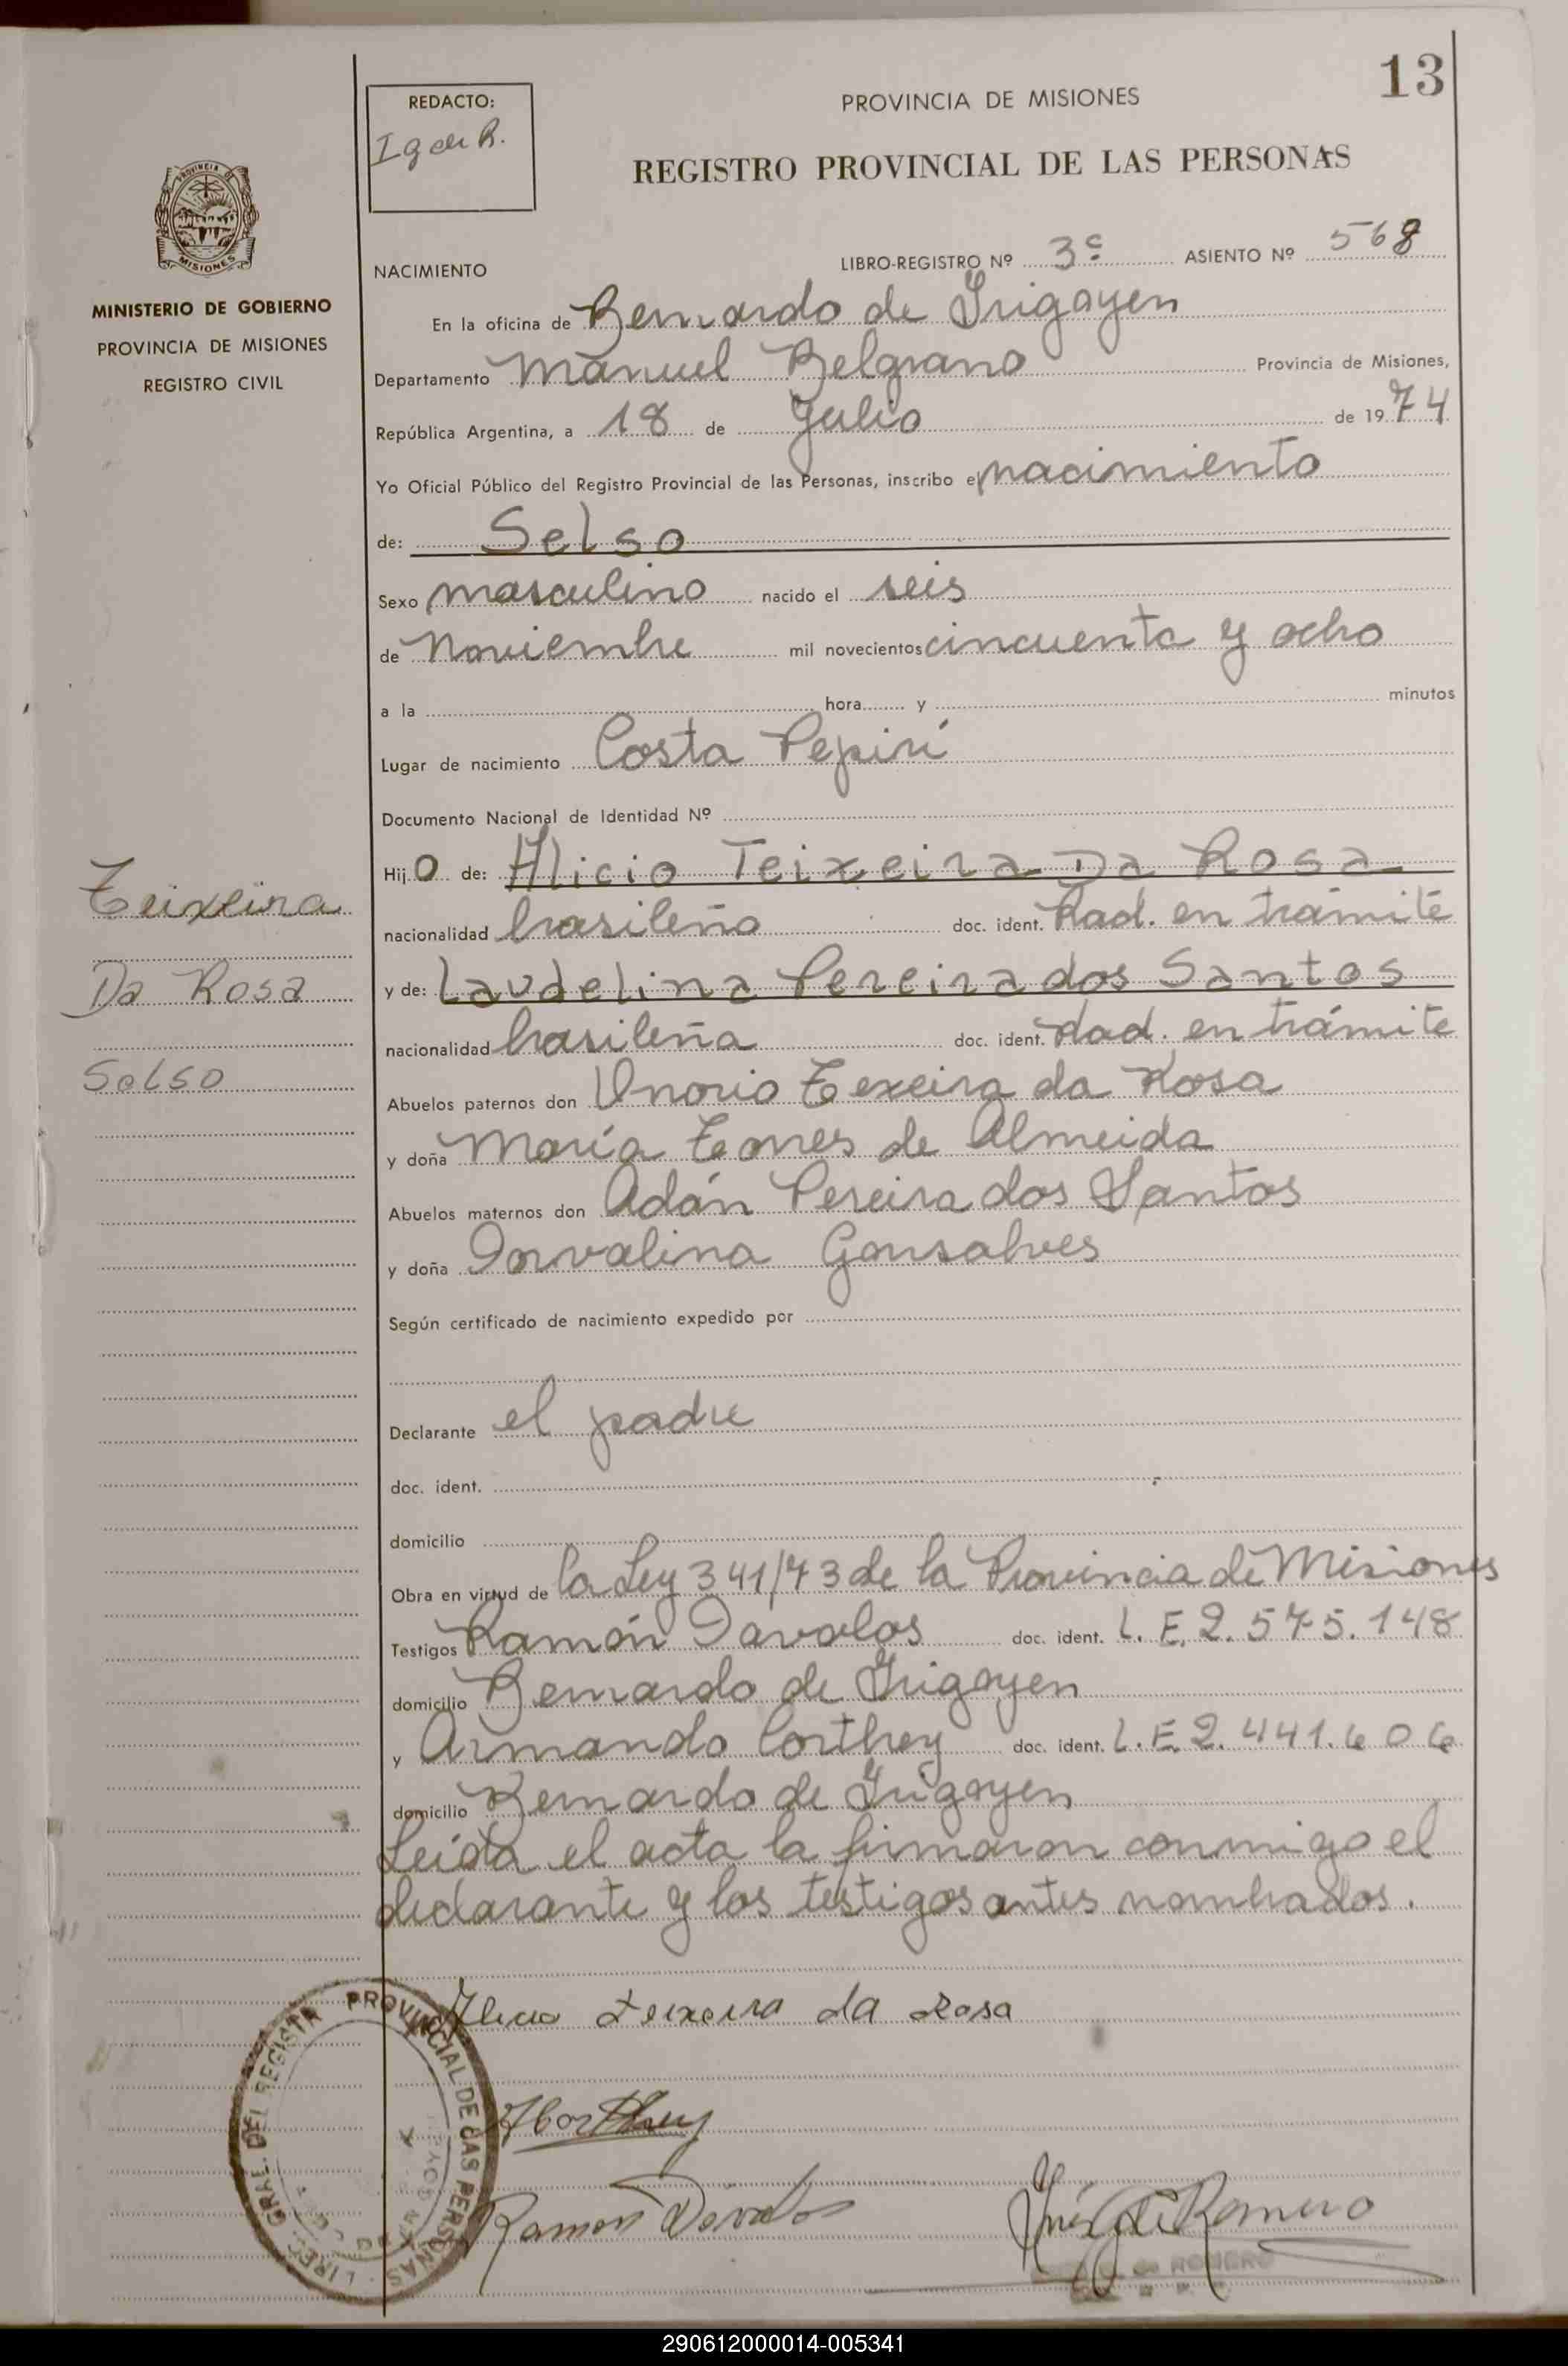 13
REDACTO:
PROVINCIA DE MISIONES
REGISTRO PROVINCIAL DE LAS PERSONAS
MISIONES
MINISTERIO DE GOBIERNO
PROVINCIA DE MISIONES
REGISTRO CIVIL
NACIMIENTO
LIBRO-REGISTRO Nº 3º ASIENTO Nº 568
En la oficina de Bernardo de Irigoyen
Departamento Manuel Belgrano Provincia de Misiones,
República Argentina, a 18 de Julio de 1974
Yo Oficial Público del Registro Provincial de las Personas, inscribo el nacimiento
de: Selso
Sexo masculino nacido el seis
de Noviembre mil novecientos cincuenta y ocho
a la hora y minutos
Lugar de nacimiento Costa Pepirí
Documento Nacional de Identidad Nº
Hijo de: Alicio Teixeira Da Rosa
Teixeira
nacionalidad brasileño doc. ident. Rad. en trámite
Da Rosa
y de: Laudelina Pereira dos Santos
nacionalidad brasileña doc. ident. Rad. en trámite
Selso
Abuelos paternos don Onorio Texeira da Rosa
y doña María Torres de Almeida
Abuelos maternos don Adán Pereira dos Santos
y doña Orvalina Gonsalves
Según certificado de nacimiento expedido por
Declarante el padre
doc. ident.
domicilio
Obra en virtud de la Ley 341/73 de la Provincia de Misiones
Testigos Ramón Davalos doc. ident. L. E. 2.575.148
domicilio Bernardo de Irigoyen
y Armando Corthey doc. ident. L.E. 2.441.606
domicilio Bernardo de Irigoyen
Leída el acta la firmaron conmigo el
declarante y los testigos antes nombrados.
Alicio Teixeira da Rosa
PROVINCIAL DE LAS PERSONAS
GRAL. DEL REGISTR
ACorthey
Ramon Dávalos
Inés de Romero
de ROMERO
290612000014-005341